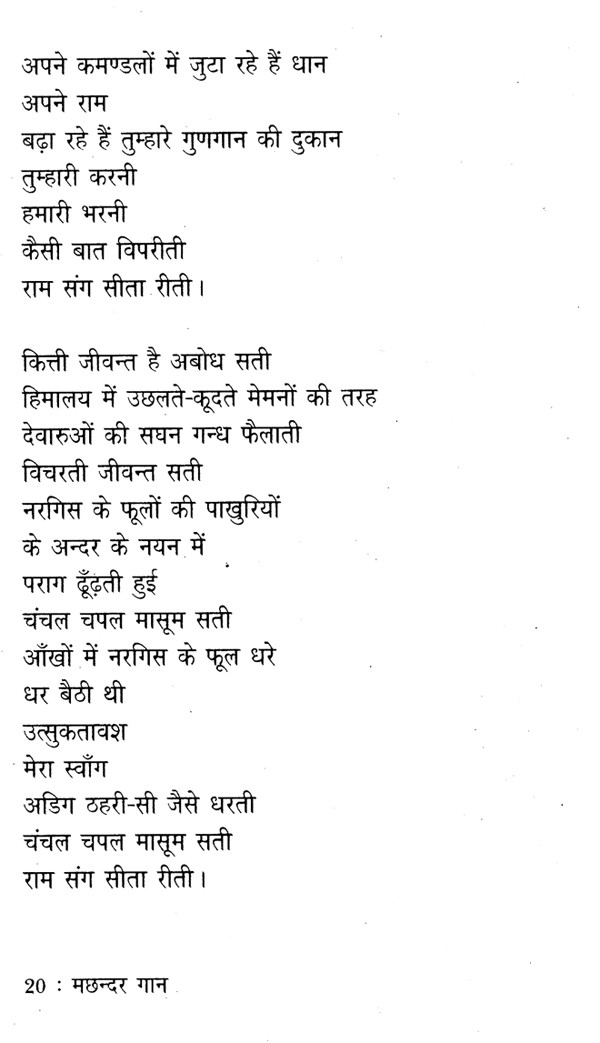 अपने कमण्डलों में जुटा रहे हैं धान
अपने राम
बढ़ा रहे हैं तुम्हारे गुणगान की दुकान
तुम्हारी करनी
हमारी भरनी
कैसी बात विपरीती
राम संग सीता रीती।
कित्ती जीवन्त है अबोध सती
हिमालय में उछलते-कूदते मेमनों की तरह
देवारुओं की सघन गन्ध फैलाती
विचरती जीवन्त सती
नरगिस के फूलों की पाखुरियों
के अन्दर के नयन में
पराग ढूँढ़ती हुई
चंचल चपल मासूम सती
आँखों में नरगिस के फूल धरे
धर बैठी थी
उत्सुकतावश
मेरा स्वाँग
अडिग ठहरी-सी जैसे धरती
चंचल चपल मासूम सती
राम संग सीता रीती।
20 : मछन्दर गान